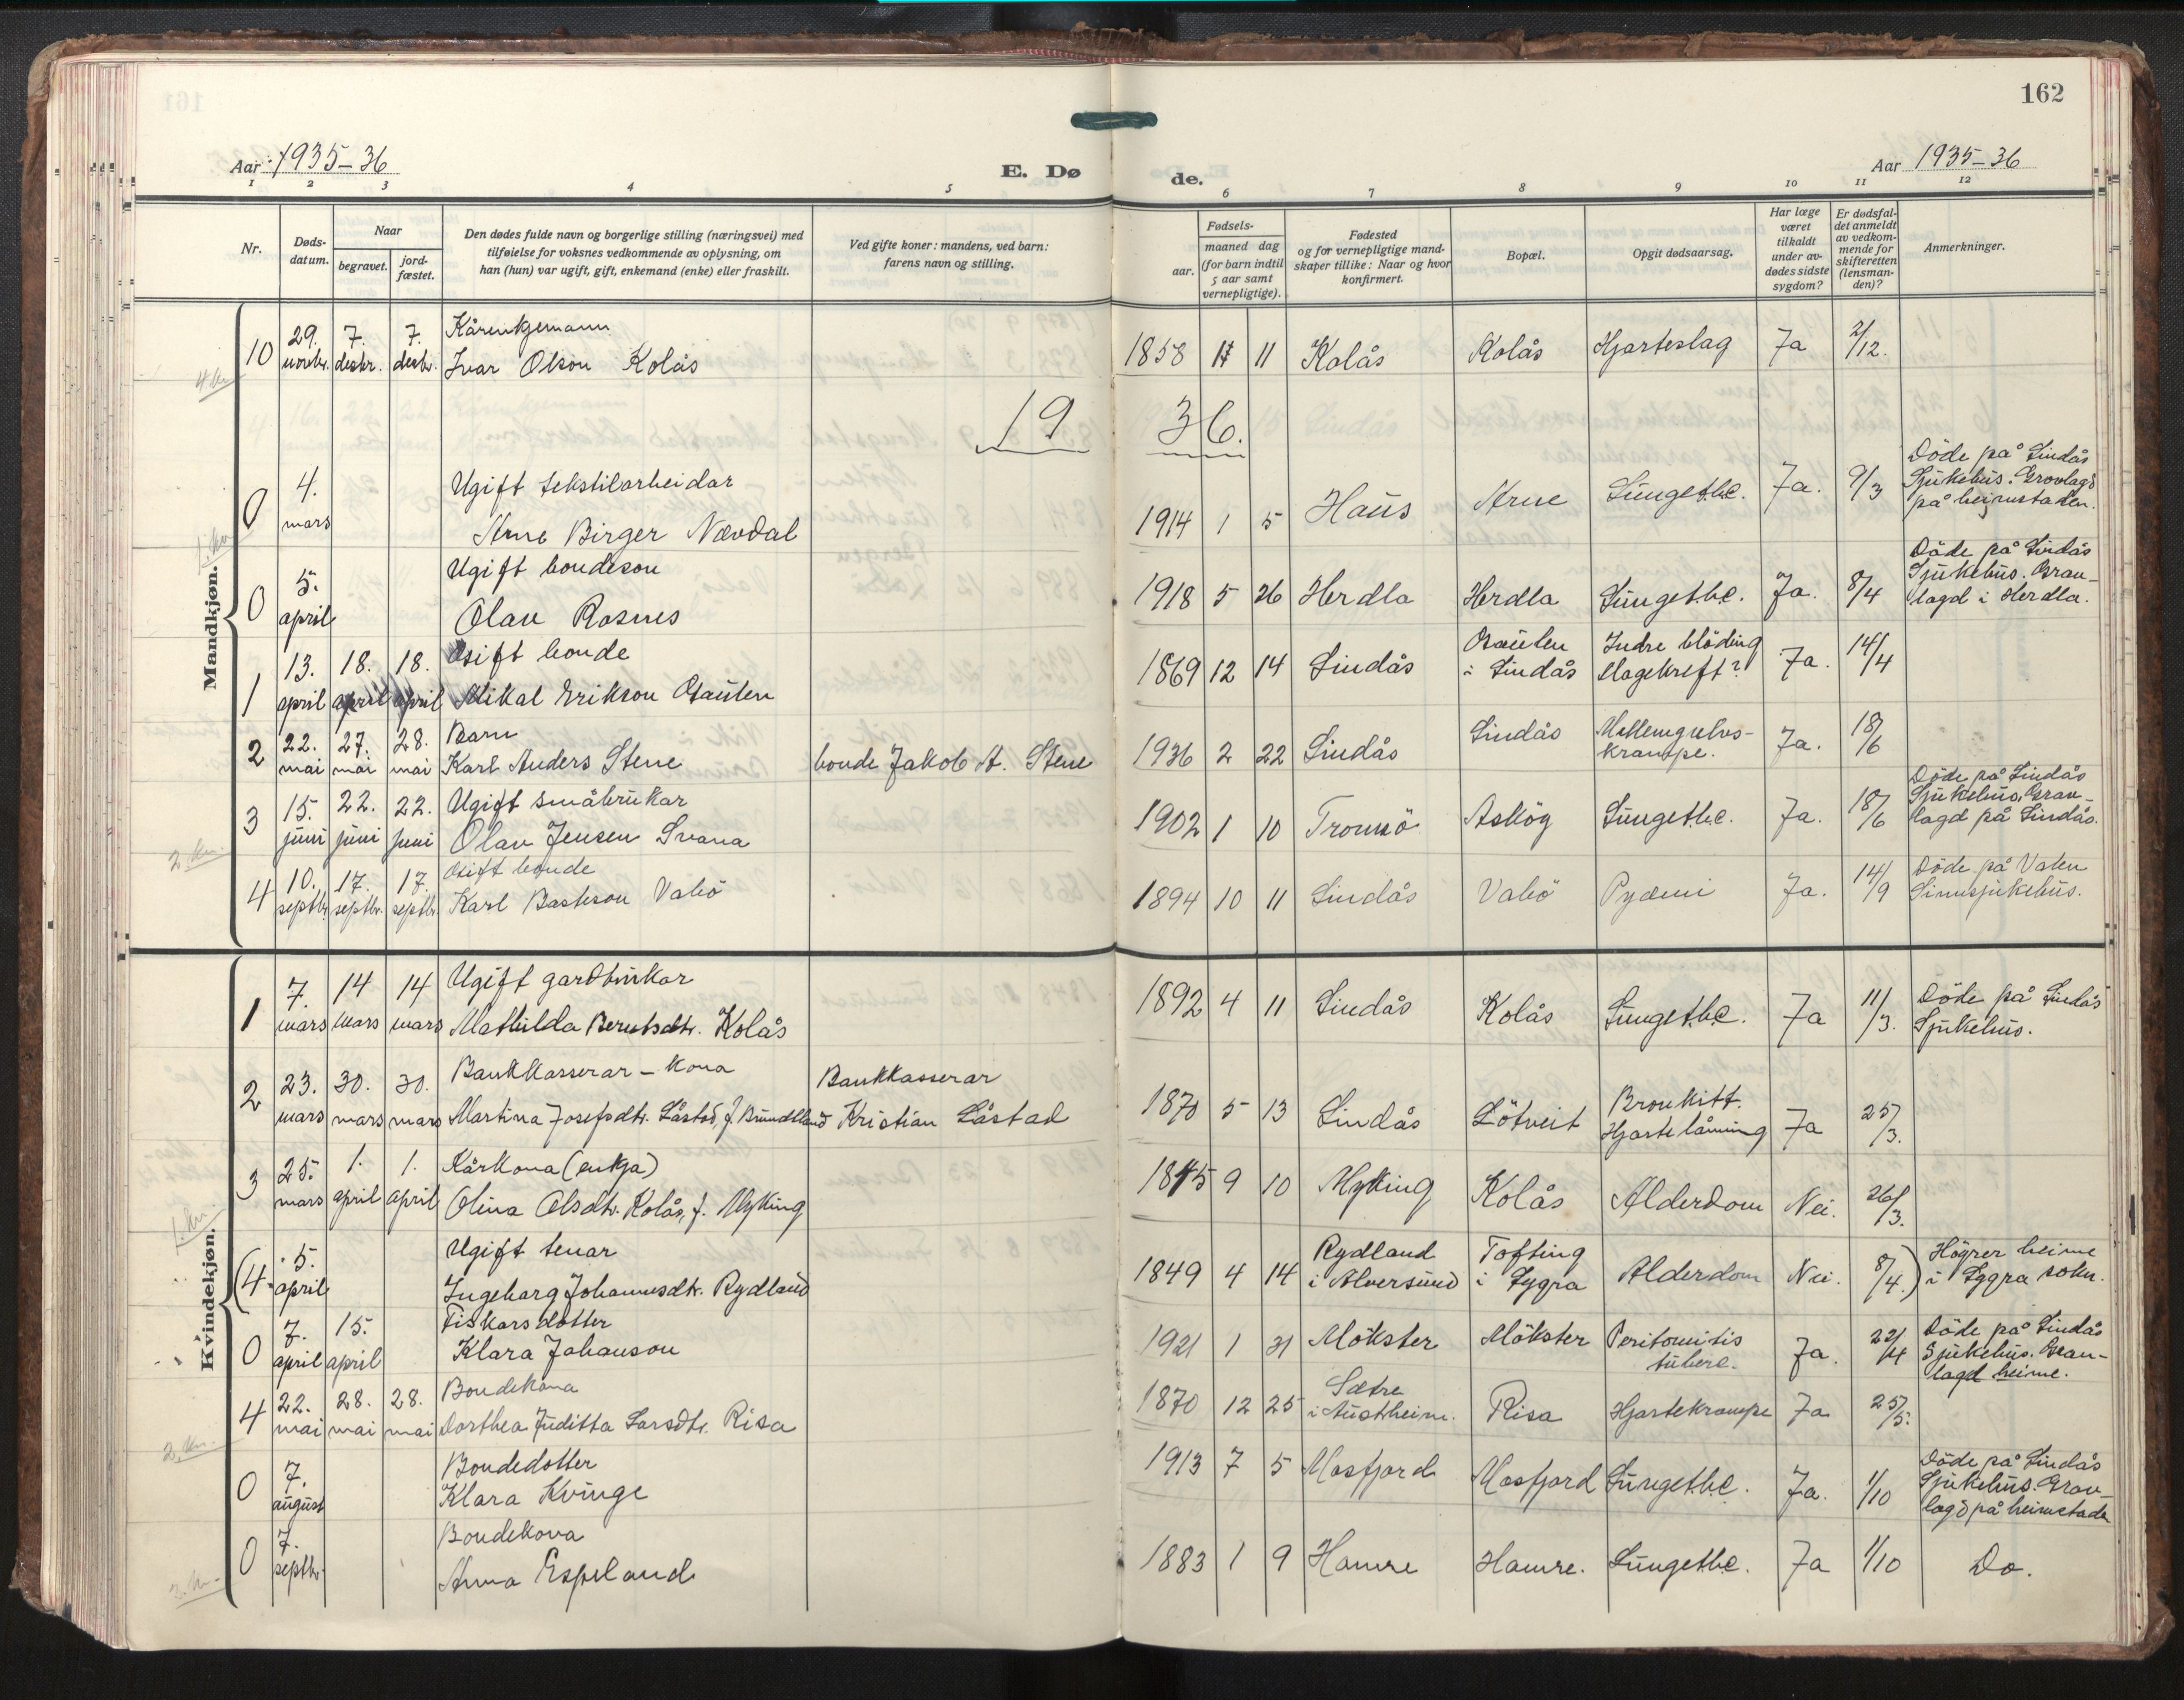 162
Aar 1935–36
E. Dø
de.
Aar 1935–36
1 2 3 4 5 6 7 8 9 10 11 12
Nr.
Døds-
datum.
Naar
begravet.
jord-
fæstet.
Den dødes fulde navn og borgerlige stilling (næringsvei) med
tilføielse for voksnes vedkommende av oplysning, om
han (hun) var ugift, gift, enkemand (enke) eller fraskilt.
Ved gifte koner: mandens, ved barn:
farens navn og stilling.
Fødsels-
aar.
maaned dag
(for barn indtil
5 aar samt
vernepligtige).
Fødested
og for vernepligtige mand-
skaper tillike: Naar og hvor
konfirmert.
Bopæl.
Opgit dødsaarsag.
Har læge
været
tilkaldt
under av-
dødes sidste
sygdom?
Er dødsfal-
det anmeldt
av vedkom-
mende for
skifteretten
(lensman-
den)?
Anmerkninger.
Mandkjøn.
10 29. novbr. 7. desbr. 7. desbr. Kårenkjemann
Ivar Olson Kolås 1858 11 Kolås Kolås Hjarteslag Ja 2/12.
19 36.
0 4. mars Ugift tekstilarbeidar
Arne Birger Nævdal 1914 1 5 Haus Arne Lungetbc. Ja. 9/3 Döde på Lindås
Sjukehus. Gravlagd
på heimstaden.
0 5. april Ugift bondeson
Olav Rosnes 1918 5 26 Herdla Herdla Lungetbc. Ja. 8/4 Döde på Lindås
Sjukehus. Grav-
lagd i Herdla.
1 13. april 18. april 18. april Gift bonde
Mikal Erikson 1869 12 14 Lindås i Lindås Indre blöding
Magekreft? Ja. 14/4
2 22. mai 27. mai 28. mai Barn
Karl Anders Stene bonde Jakob A. Stene 1936 2 22 Lindås Lindås Mellemgulvs-
krampe. Ja. 18/6
3 15. juni 22. juni 22. juni Ugift småbrukar
Olav Jensen Svana 1902 1 10 Tromsö Asköy Lungetbc. Ja. 18/6 Döde på Lindås
Sjukehus. Grav-
lagd på Lindås.
4 10. septbr. 17. septbr. 17. septbr. Gift bonde
Karl Basteson Vabö 1894 10 11 Lindås Vabö Pyæmi Ja. 14/9 Döde på Valen
Sinnsjukehus.
Kvindekjøn.
1 7. mars 14 mars 14 mars Ugift gardbrukar
Mathilda Berntsdtr. Kolås 1892 4 11 Lindås Kolås Lungetbc. Ja 11/3. Döde på Lindås
Sjukehus.
2 23. mars 30. mars 30. mars Bankkasserar-kona
Martina Josefsdtr. Låstad, f. Brundtland Bankkasserar
Kristian Låstad 1870 5 13 Lindås Lötveit Bronkitt.
Hjartelåming Ja 25/3.
3 25. mars 1. april 1. april Kårkona (enkja)
Olina Olsdtr. Kolås, f. Myking 1845 9 10 Myking Kolås Alderdom Nei. 26/3.
(4. 5. april Ugift tenar
Ingeborg Johannesdtr. Rydland 1849 4 14 Rydland
i Alversund Tofting
i Lygra Alderdom Nei. 8/4.) Högrer heime
i Lygra sokn.
0 7. april 15. april Fiskarsdotter
Klara Johanson 1921 1 31 Mökster Mökster Peritonitis
tuberc. Ja. 22/4 Döde på Lindås
Sjukehus. Grav-
lagd heime.
4 22. mai 28. mai 28. mai Bondekona
Dorthea Juditta Larsdtr. Risa 1870 12 25 Sætre
i Austrheim. Risa Hjartekrampe Ja 25/5.
0 7. august Bondedotter
Klara Kvinge 1913 7 5 Masfjord Masfjord Lungetbc. Ja. 1/10 Döde på Lindås
Sjukehus. Grav-
lagd på heimstaden
0 7. septbr. Bondekona
Anna Espeland 1883 1 9 Hamre Hamre. Lungetbc. Ja 1/10 Do.